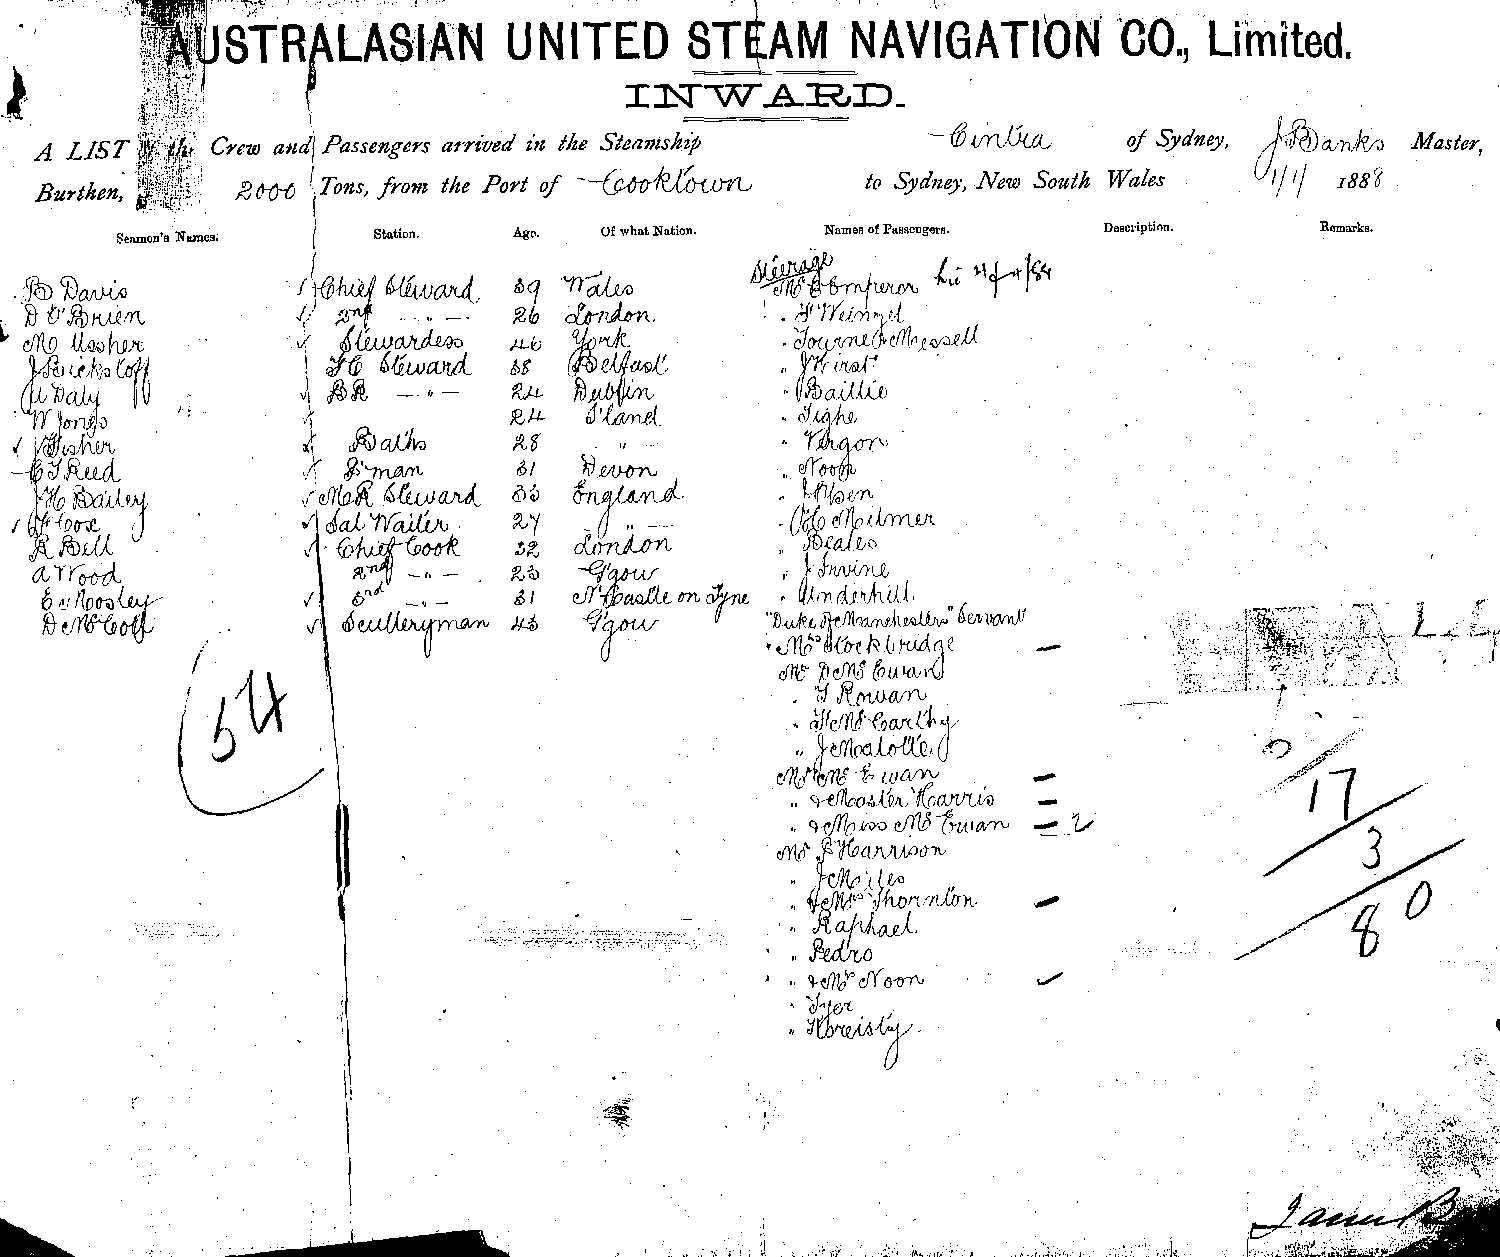 AUSTRALASIAN UNITED STEAM NAVIGATION CO., Limited.
INWARD.
A LIST of the Crew and Passengers arrived in the Steamship Cintra of Sydney, J Banks Master,
Burthen, 2000 Tons, from the Port of Cooktown to Sydney, New South Wales 1/1/ 1888
Seamen's Names. Station. Age. Of what Nation. Names of Passengers. Description. Remarks.
Steerage
B Davis Chief Steward 39 Wales Mr Emperor
D O'Brien 2nd " 26 London " Weinzel
M Ussher Stewardess 46 York " Tourne & Messell
J Ricksloff F C Steward 38 Belfast " J Hirst
M Daly BR " 24 Dublin " Baillie
W Jongs 24 I'land " Tighe
J Fisher Baths 28 " " Vergon
C T Reed Pman 31 Devon " Noon
J H Bailey M R Steward 33 England " J Olsen
H Cox Sal Waiter 27 " " C Milmer
R Bell Chief Cook 32 London " Beales
A Wood 2nd " 23 G'gow " J Irvine
E Mosley 3rd " 31 N'Castle on Tyne " Underhill
D McColl Sculleryman 43 G'gow "Duke of Manchesters" Servant
Mrs Stockbridge
Mr D McEwan
" T Rowan
" McCarthy
" J Malotte
Mrs McEwan
" & Master Harris
" & Miss McEwan 2
Mr J Harrison
" J Miles
" & Mrs Thornton
" Raphael
" Pedro
" & Mr Noon
" Tyer
" Kreisty
54
17
3
80